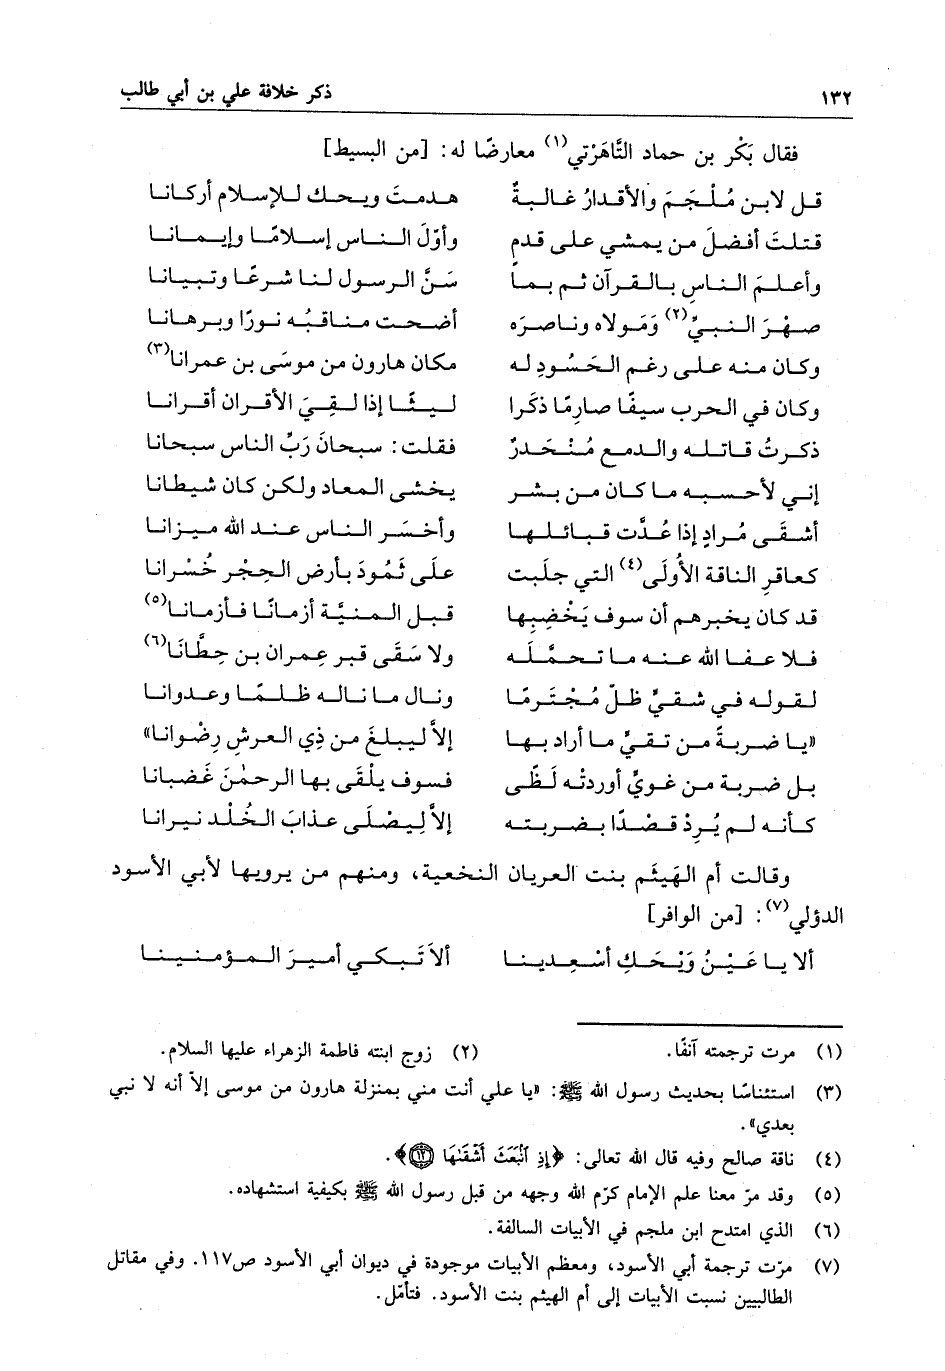 ١٣٢ ذكر خلافة علي بن أبي طالب
فقال بَكْر بن حماد التَّاهَرْتي(١) معارضًا له: [من البسيط]
قل لابن مُلْجَمَ والأقدارُ غالبةٌ هدمتَ ويحك للإسلام أركانا
قتلتَ أفضلَ من يمشي على قدم وأوّلَ الناس إسلامًا وإيمانا
وأعلمَ الناسِ بالقرآن ثم بما سَنَّ الرسول لنا شرعًا وتبيانا
صهْرَ النبيِّ(٢) وَمَولاه وناصرَه أضحت مناقبُه نورًا وبرهانا
وكان منه على رغم الحَسُودِ له مكان هارون من موسَى بن عمرانا(٣)
وكان في الحرب سيفًا صارمًا ذكرا ليثًا إذا لقيَ الأقران أقرانا
ذكرتُ قاتله والدمع مُنْحَدرٌ فقلت: سبحانَ رَبِّ الناس سبحانا
إني لأحسبه ما كان من بشر يخشى المعاد ولكن كان شيطانا
أشقَى مُرادٍ إذا عُدَّت قبائلها وأخسَر الناس عند الله ميزانا
كعاقر الناقة الأُولَى(٤) التي جلبت على ثَمُودَ بأرض الحِجْر خُسْرانا
قد كان يخبرهم أن سوف يَخْضِبها قبل المنيَّة أزمانًا فأزمانا(٥)
فلا عفا الله عنه ما تحمَّله ولا سَقَى قبر عمران بن حِطَّانَا(٦)
لقوله في شقيٍّ ظلّ مُجْترمًا ونال ما ناله ظلمًا وعدوانا
«يا ضربةً من تقيٍّ ما أراد بها إلاَّ ليبلغ من ذِي العرشِ رِضْوانا»
بل ضربة من غويٍّ أوردتْه لَظًى فسوف يلْقَى بها الرحمٰنَ غَضبانا
كأنه لم يُرِدْ قصْدًا بضربته إلاَّ لِيصْلَى عذابَ الخُلْد نيرانا
وقالت أم الهَيثَم بنت العريان النخعية، ومنهم من يرويها لأبي الأسود
الدؤلي(٧): [من الوافر]
ألا يا عَيْنُ وَيْحَكِ أسْعِدينا ألاَ تَبكي أميرَ المؤمنينا
(١) مرت ترجمته آنفًا. (٢) زوج ابنته فاطمة الزهراء عليها السلام.
(٣) استئناسًا بحديث رسول الله ﷺ: «يا علي أنت مني بمنزلة هارون من موسى إلاّ أنه لا نبي
بعدي».
(٤) ناقة صالح وفيه قال الله تعالى: ﴿إِذِ ٱنۢبَعَثَ أَشْقَىٰهَا ١٢﴾.
(٥) وقد مرّ معنا علم الإمام كرّم الله وجهه من قبل رسول الله ﷺ بكيفية استشهاده.
(٦) الذي امتدح ابن ملجم في الأبيات السالفة.
(٧) مرّت ترجمة أبي الأسود، ومعظم الأبيات موجودة في ديوان أبي الأسود ص١١٧. وفي مقاتل
الطالبيين نسبت الأبيات إلى أم الهيثم بنت الأسود. فتأمّل.